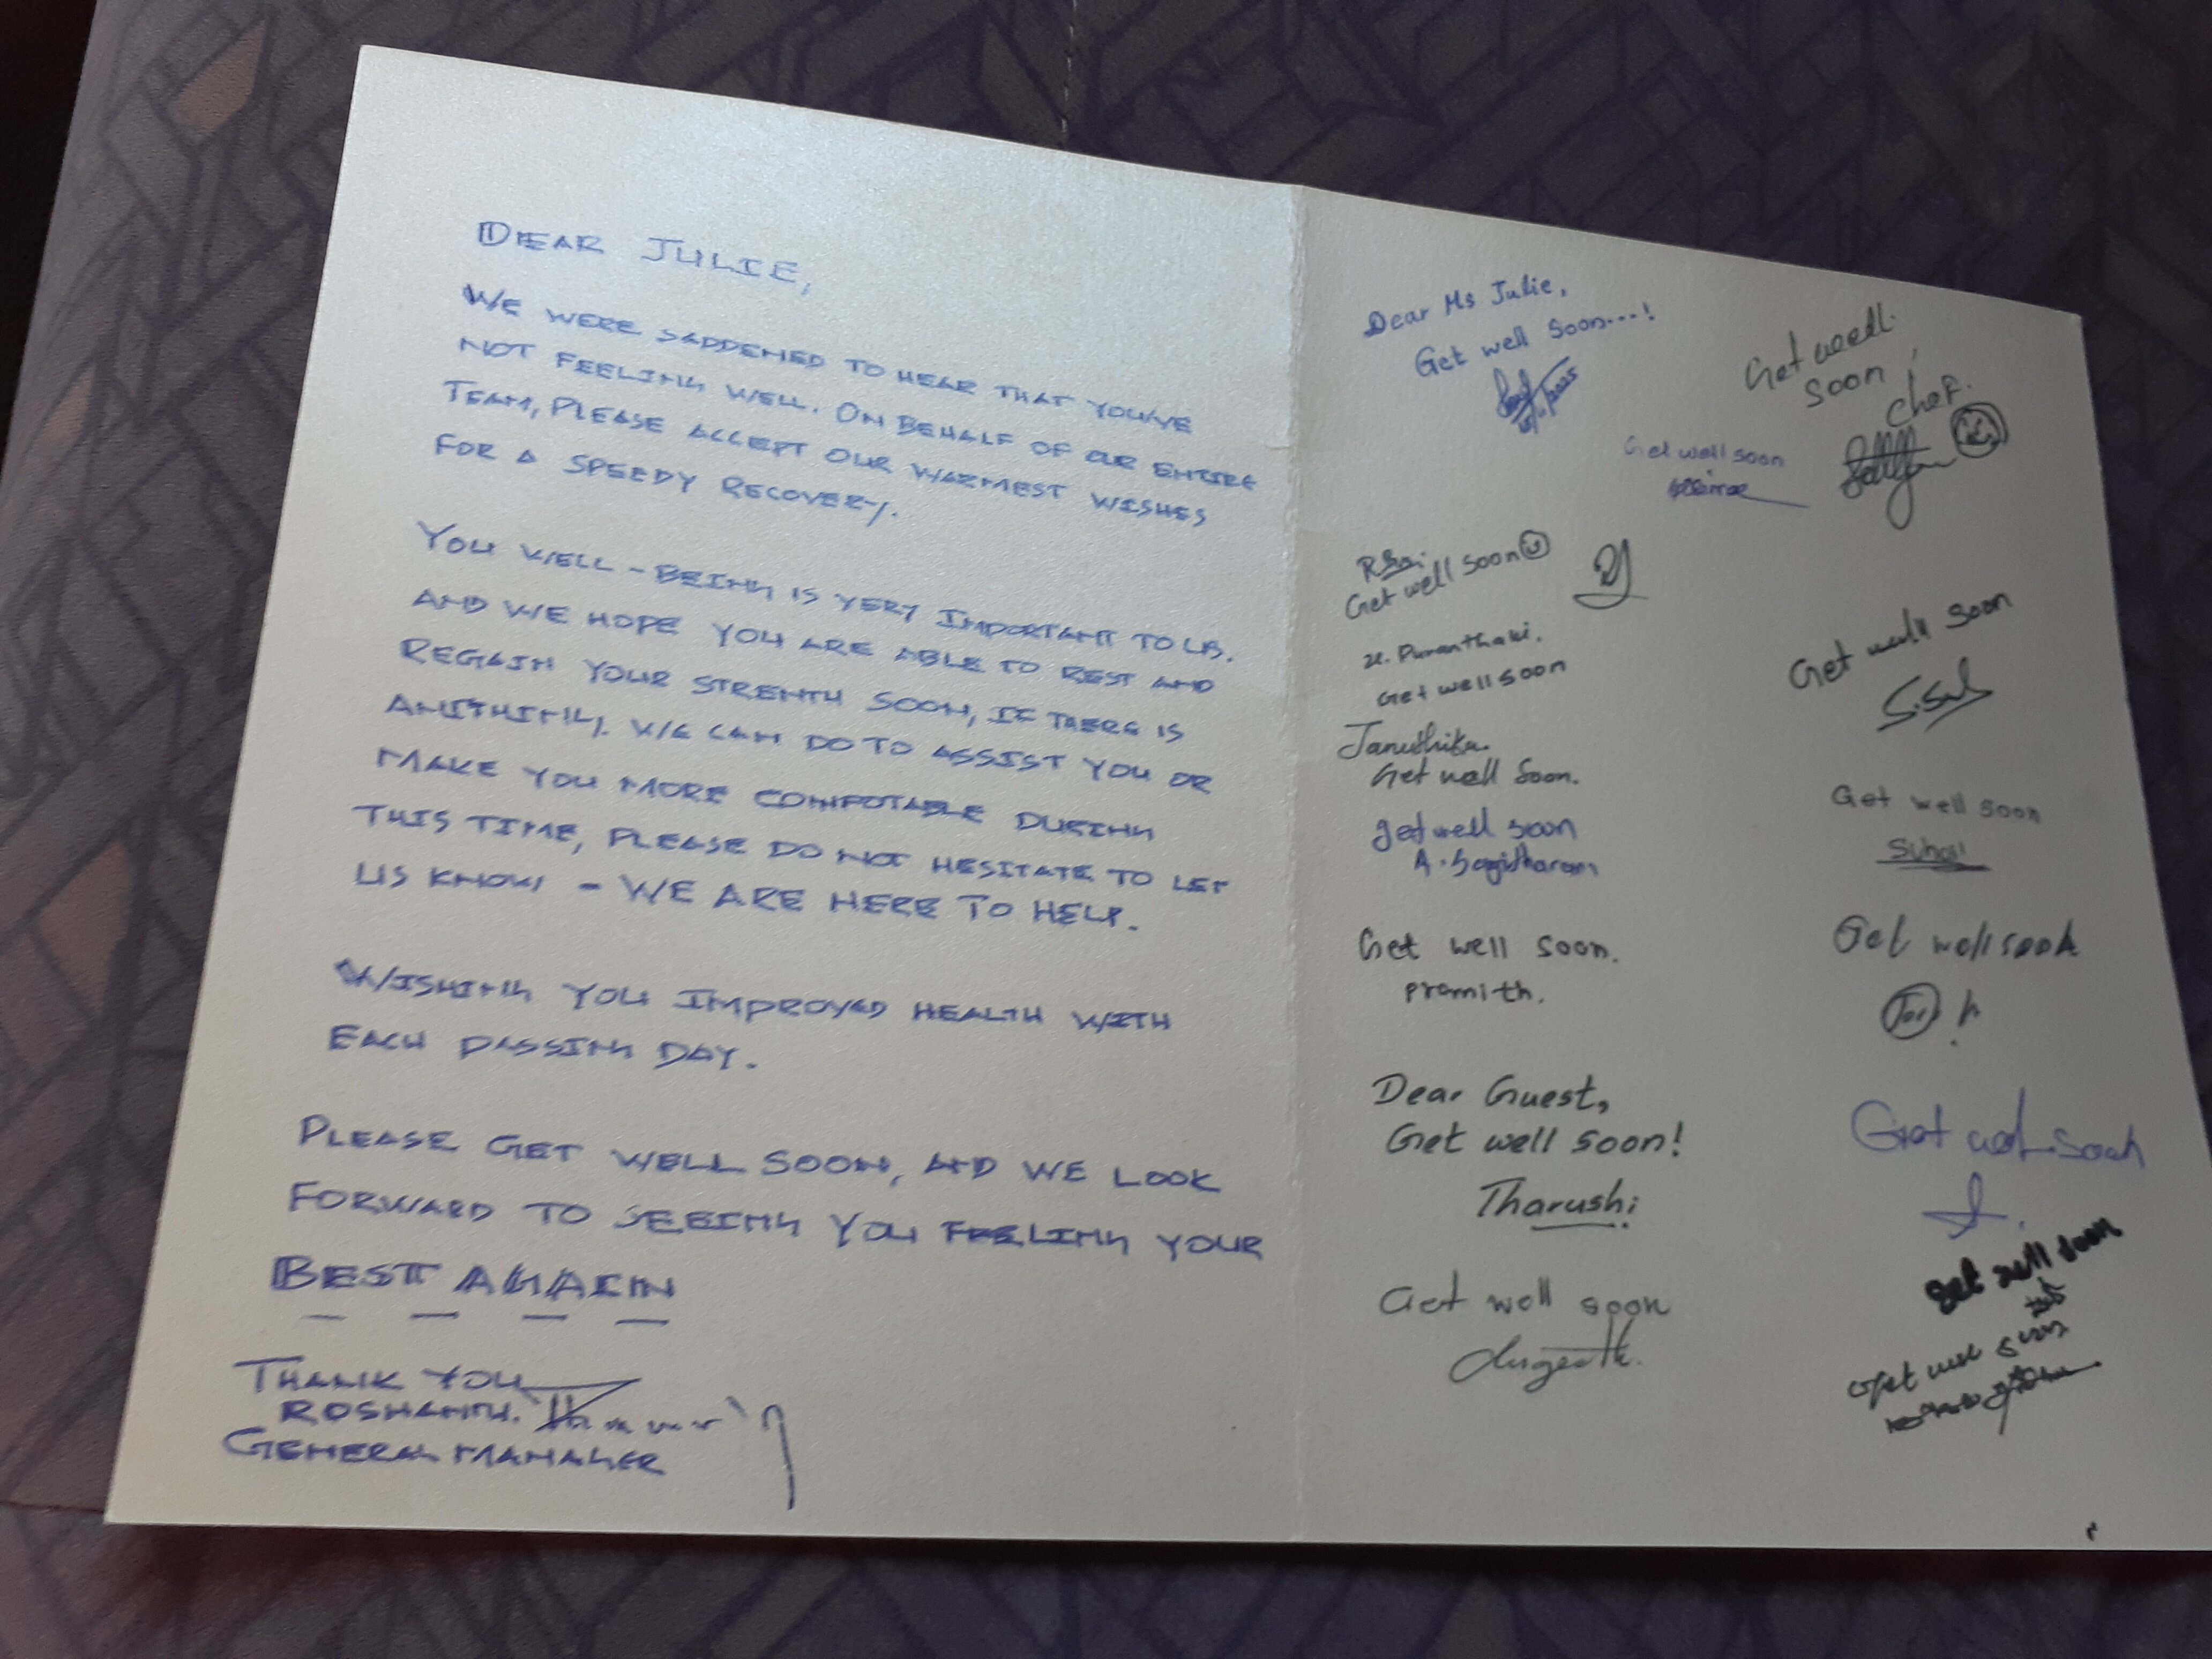 DEAR JULIE,
WE WERE SADDENED TO HEAR THAT YOU'VE
NOT FEELING WELL. ON BEHALF OF OUR ENTIRE
TEAM, PLEASE ACCEPT OUR WARMEST WISHES
FOR A SPEEDY RECOVERY.
YOU WELL-BEING IS VERY IMPORTANT TO US.
AND WE HOPE YOU ARE ABLE TO REST AND
REGAIN YOUR STRENTH SOON, IF THERE IS
ANITHING. WE CAN DO TO ASSIST YOU OR
MAKE YOU MORE COMFOTABLE DURING
THIS TIME, PLEASE DO NOT HESITATE TO LET
US KNOW - WE ARE HERE TO HELP.
WISHING YOU IMPROVED HEALTH WITH
EACH PASSING DAY.
PLEASE GET WELL SOON, AND WE LOOK
FORWARD TO SEEING YOU FEELING YOUR
BEST AGAIN
THANK YOU
ROSHANTH.
GENERAL MANAGER
Dear Ms Julie,
Get well soon...!
Get well
soon!
Chef.
Get well soon
Get well soon
Puranthaki.
Get well soon
Janushika
Get well soon.
get well soon
Get well soon.
pramith.
Dear Guest,
Get well soon!
Tharushi
Get well soon
Get well soon
Get well soon
Get well soon
Get well soon
Get well soon
Get well soon